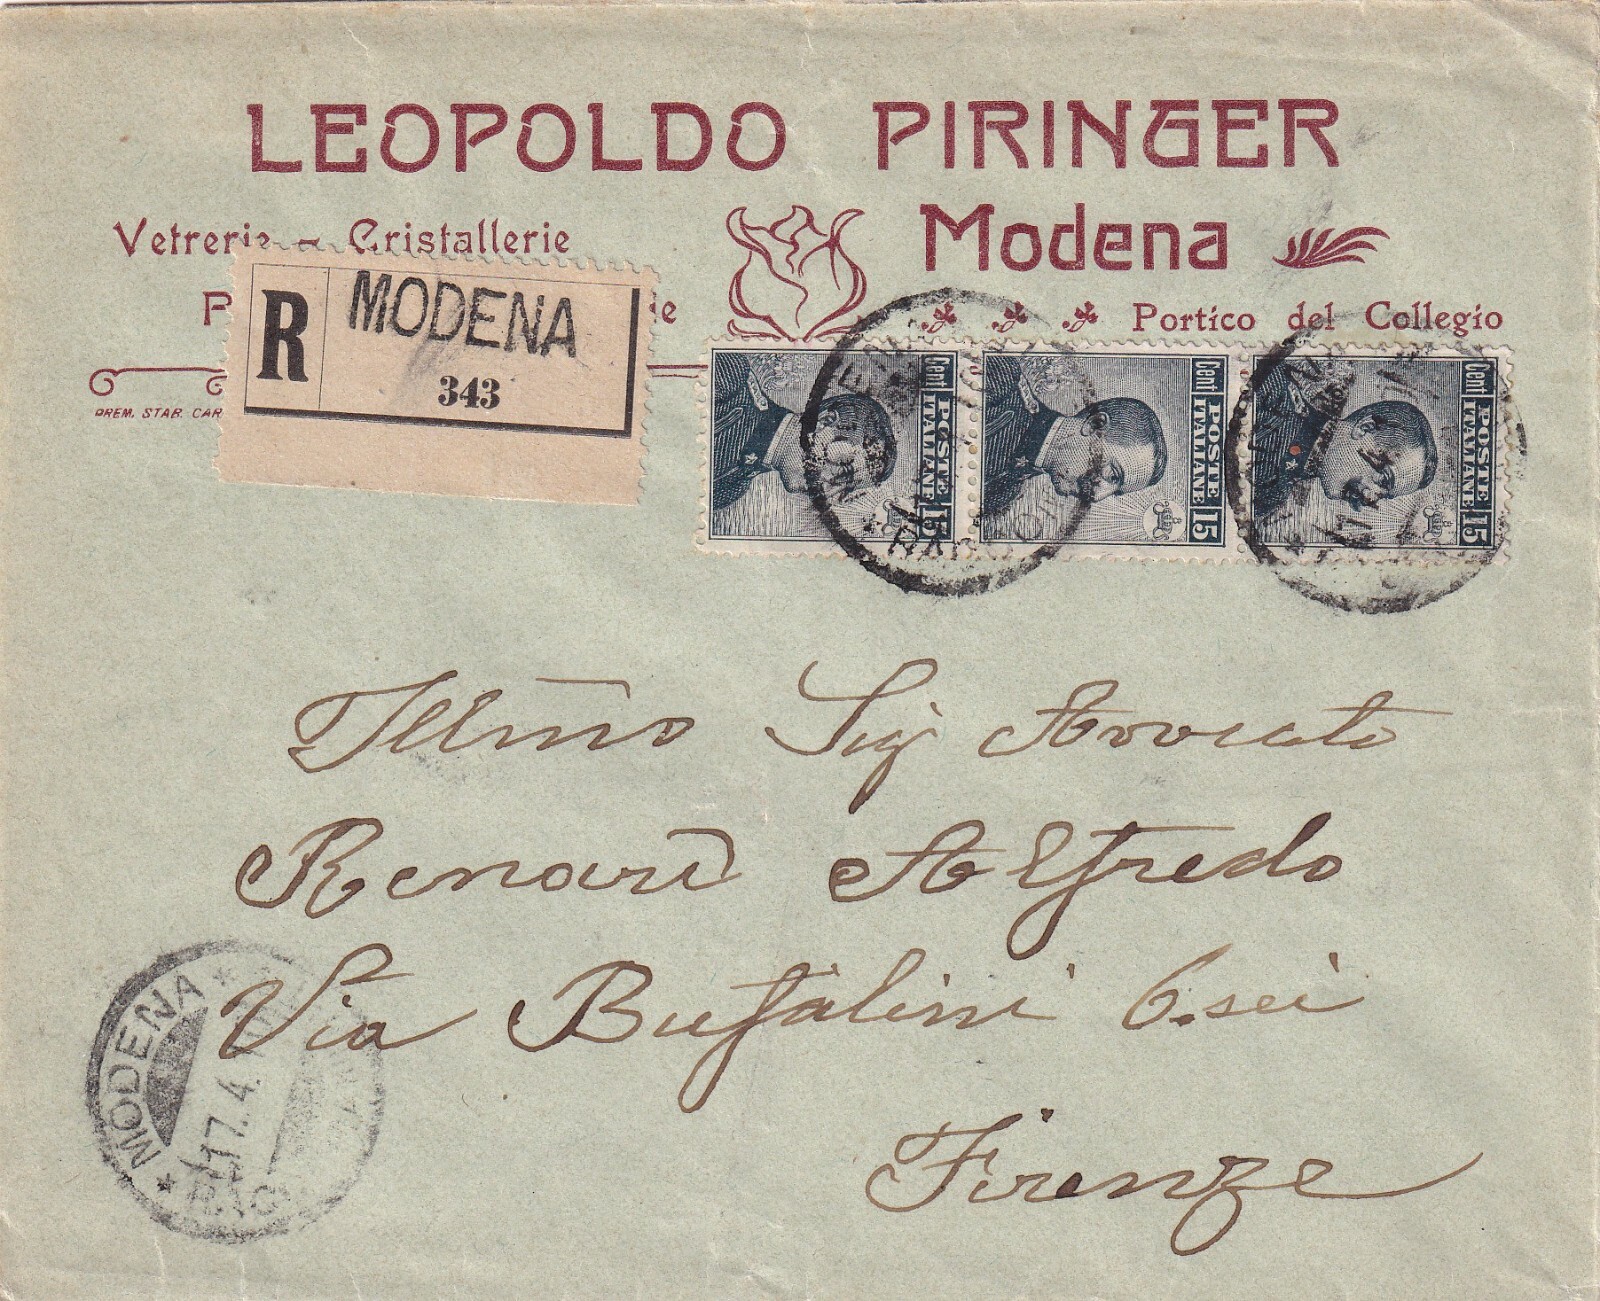 LEOPOLDO PIRINGER
Vetrerie - Cristallerie
Modena
Portico del Collegio
PREM. STAB. CAR
R
MODENA
343
Cent 15
POSTE ITALIANE
Cent 15
POSTE ITALIANE
Cent 15
POSTE ITALIANE
Illm̃o Sig Avvocato
Renard Alfredo
Via Bufalini 6. sei
Firenze
MODENA
17.4